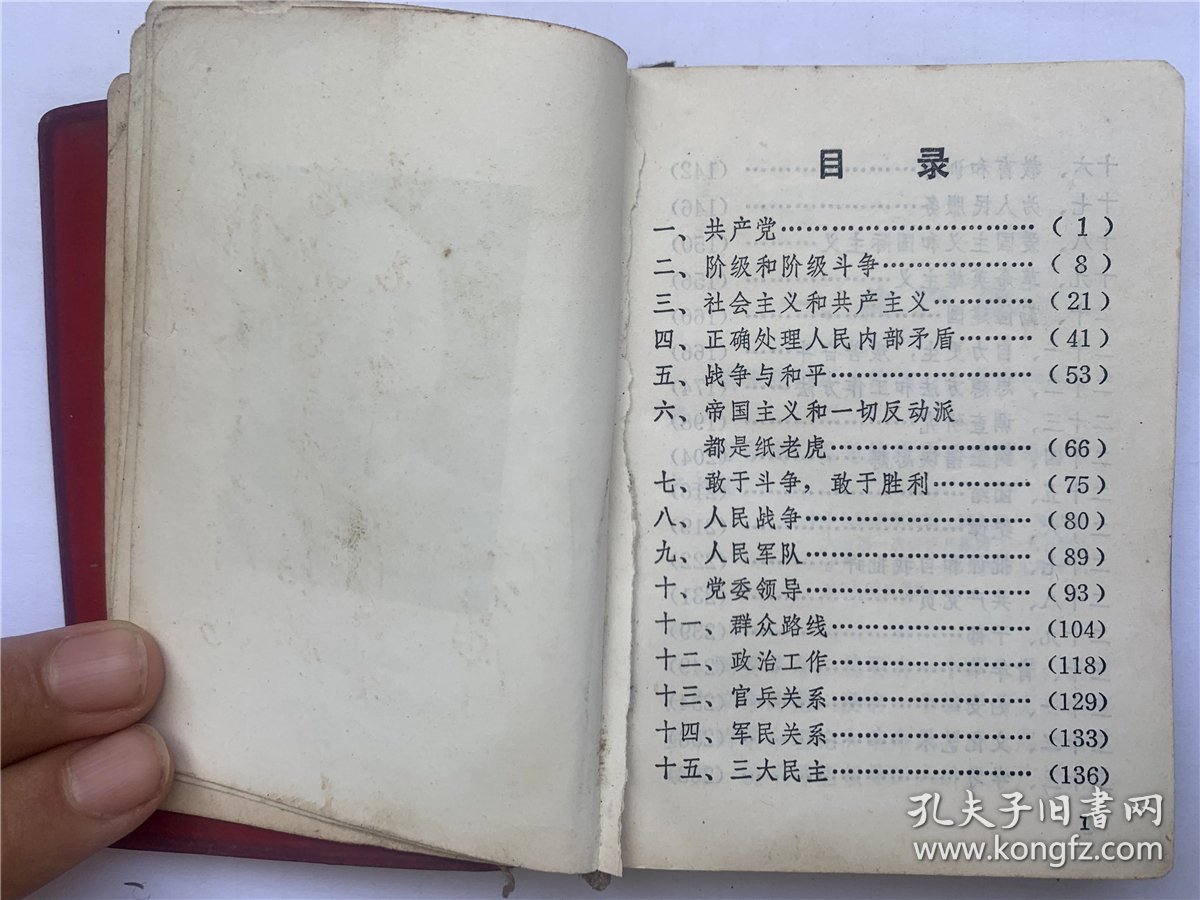 目 录
一、共产党……………………………( 1 )
二、阶级和阶级斗争………………( 8 )
三、社会主义和共产主义…………(21)
四、正确处理人民内部矛盾………(41)
五、战争与和平……………………(53)
六、帝国主义和一切反动派
都是纸老虎……………………(66)
七、敢于斗争，敢于胜利…………(75)
八、人民战争………………………(80)
九、人民军队………………………(89)
十、党委领导………………………(93)
十一、群众路线……………………(104)
十二、政治工作……………………(118)
十三、官兵关系……………………(129)
十四、军民关系……………………(133)
十五、三大民主……………………(136)
1
孔夫子旧書网
www.kongfz.com